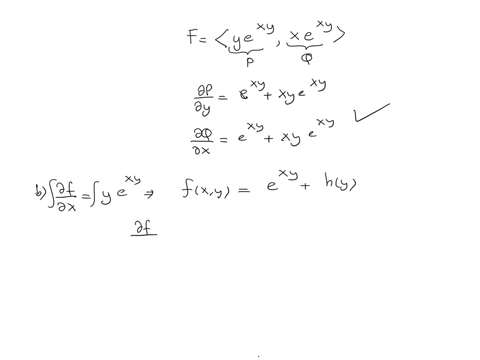 F = ⟨ye^{xy}, xe^{xy}⟩
P Q
∂P/∂y = e^{xy} + xy e^{xy}
∂Q/∂x = e^{xy} + xy e^{xy} ✓
b) ∫ ∂f/∂x = ∫ y e^{xy} → f(x,y) = e^{xy} + h(y)
∂f